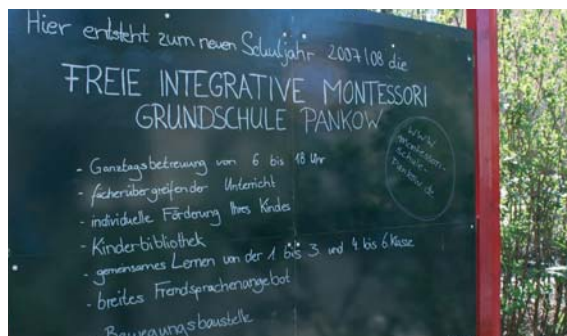 Hier entsteht zum neuen Schuljahr 2007/08 die
FREIE INTEGRATIVE MONTESSORI
GRUNDSCHULE PANKOW
- Ganztagsbetreuung von 6 bis 18 Uhr
- fächerübergreifender Unterricht
- individuelle Förderung Ihres Kindes
- Kinderbibliothek
- gemeinsames Lernen von der 1. bis 3. und 4 bis 6. Klasse
- breites Fremdsprachenangebot
- Bewegungsbaustelle
www.
montessori-
schule-
pankow.de